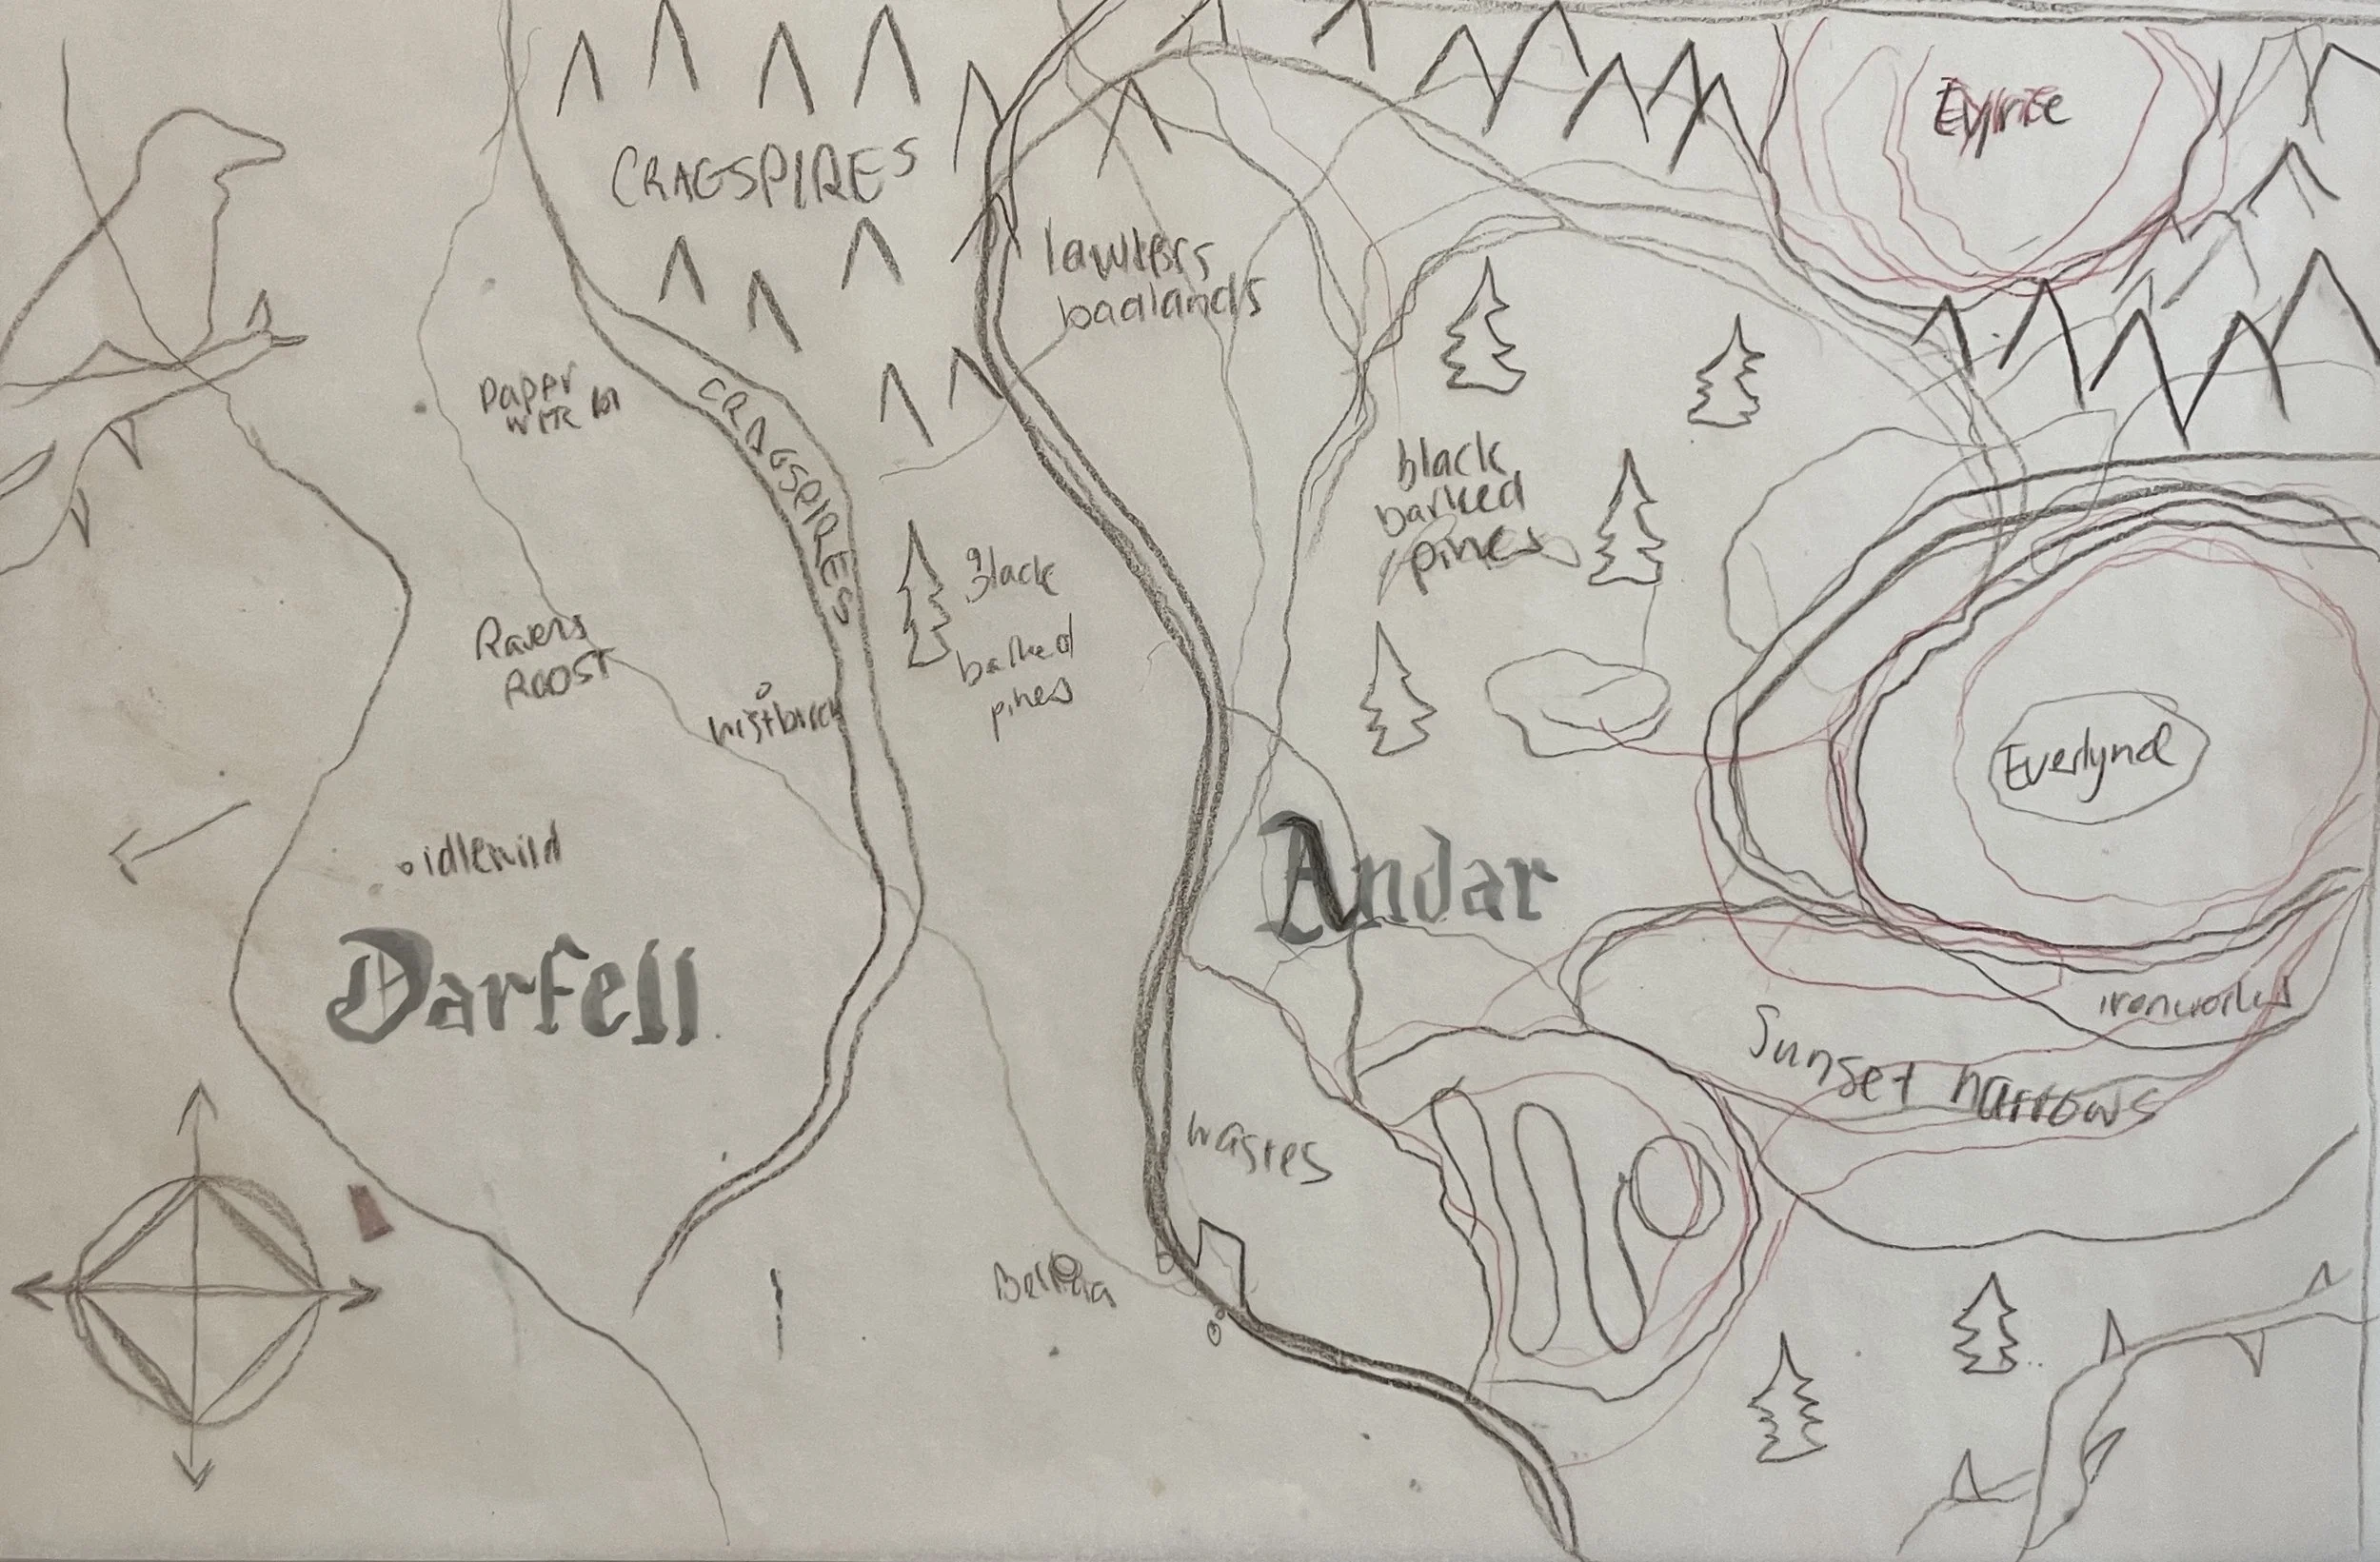 CRAGSPIRES
lawless
badlands
CRAGSPIRES
black
barked
pines
Black
barked
pines
Ravens
ROOST
mistbirch
Everlynd
idlewild
Andar
Darfell
ironworks
Sunset narrows
wastes